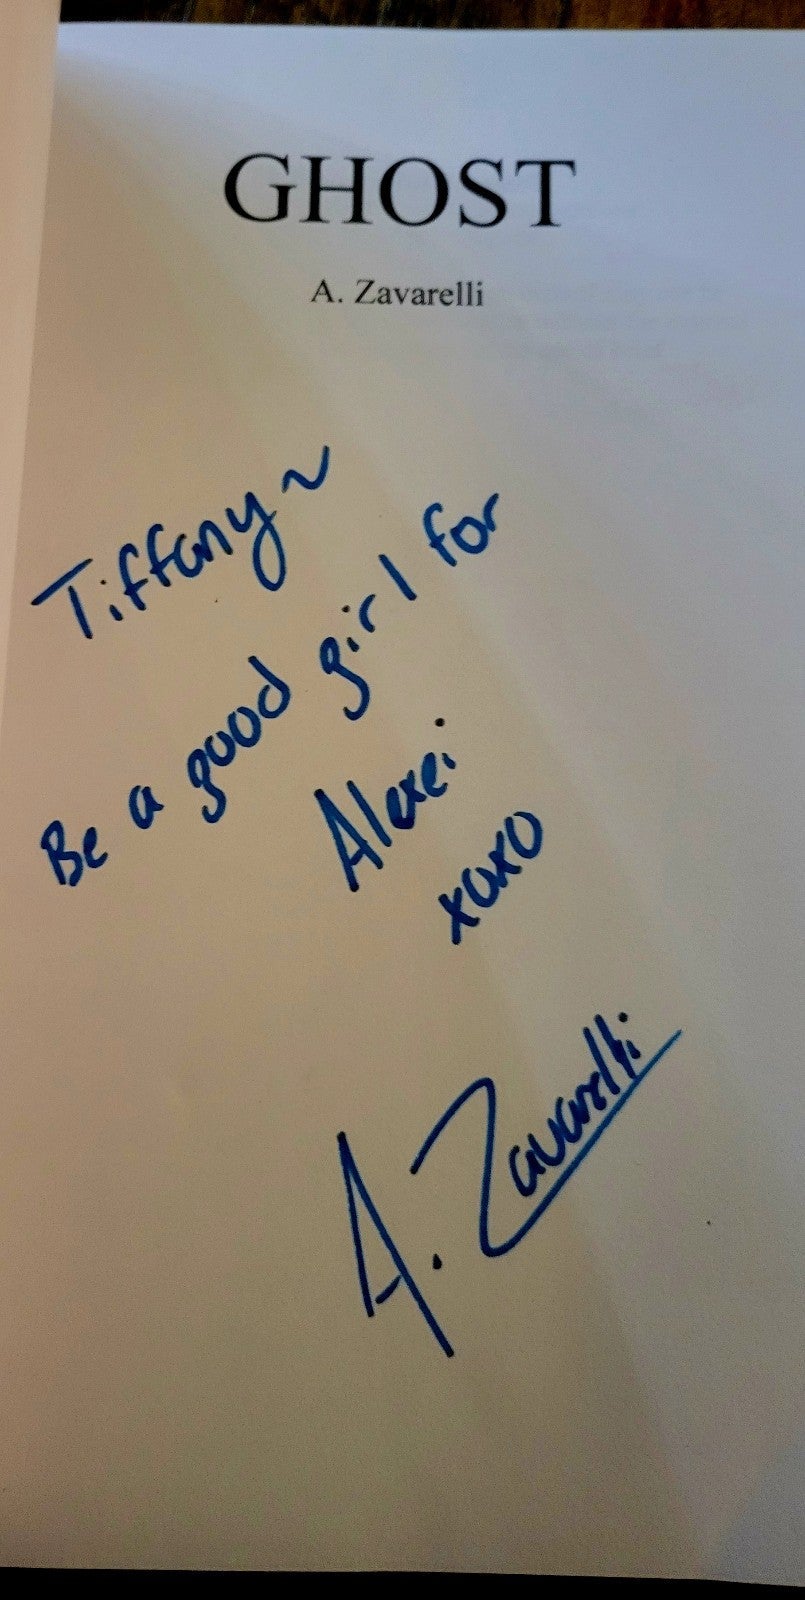 GHOST
A. Zavarelli
Tiffany ~
Be a good girl for
Alexei
xoxo
A. Zavarelli